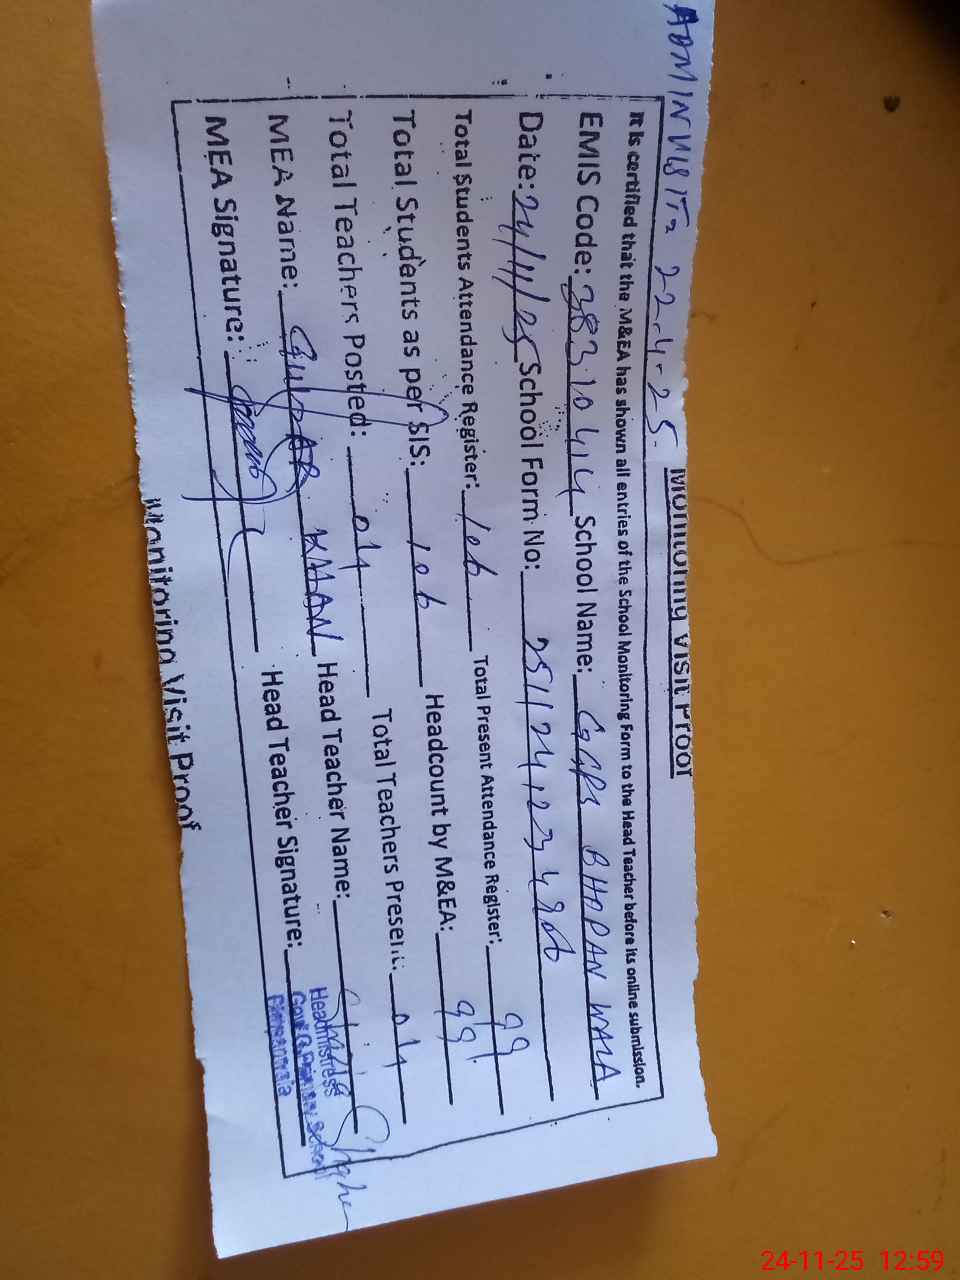 ADMIN VISIT= 22.4-25.
Monitoring Visit Proof
It is certified that the M&EA has shown all entries of the School Monitoring Form to the Head Teacher before its online submission.
EMIS Code: 38310414 School Name: GGPS BHOPAN WALA
Date: 24/11/25 School Form No:
Total Students Attendance Register: 106 Total Present Attendance Register: 99
Total Students as per SIS: 106 Headcount by M&EA: 99
Total Teachers Posted: 04 Total Teachers Present: 04
MEA Name: GULZAR KHAN Head Teacher Name:
MEA Signature: Head Teacher Signature:
Headmistress
Monitoring Visit Proof
24-11-25 12:59